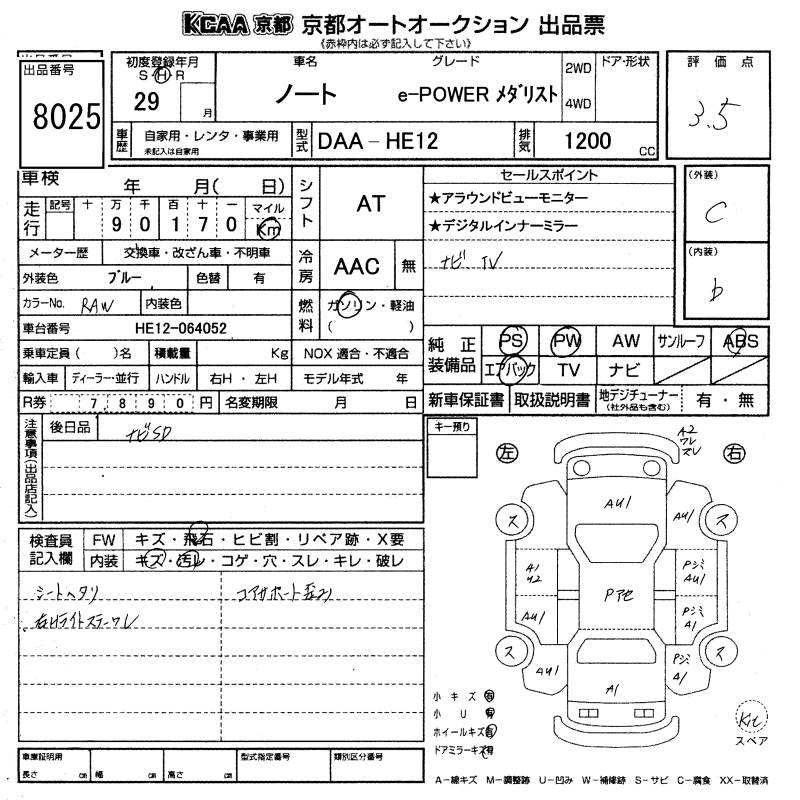 KCAA 京都 京都オートオークション 出品票
《赤枠内は必ず記入して下さい》
出品番号
8025
初度登録年月
S H R
29 月
車名
ノート
グレード
e-POWER メダリスト
2WD
4WD
ドア・形状
評価点
3.5
車歴
自家用・レンタ・事業用
未記入は自家用
型式
DAA-HE12
排気
1200 CC
車検 年 月( 日)
走行
記号 十 万 千 百 十 一 マイル
9 0 1 7 0 Km
シフト
AT
セールスポイント
★アラウンドビューモニター
★デジタルインナーミラー
ナビ TV
(外装)
C
(内装)
b
メーター歴 交換車・改ざん車・不明車
冷房
AAC 無
外装色 ブルー 色替 有
カラーNo. RAW 内装色
燃料
ガソリン・軽油
( )
車台番号 HE12-064052
乗車定員( )名 積載量 Kg NOX 適合・不適合
輸入車 ディーラー・並行 ハンドル 右H・左H モデル年式 年
R券 7,890円 名変期限 月 日
純正装備品
PS PW AW サンルーフ ABS
エアバック TV ナビ
新車保証書 取扱説明書 地デジチューナー 有・無
(社外品も含む)
注意事項(出品店記入)
後日品 ナビSD
キー預り
左
右
A2
ワレ
スレ
AU1
AU1
ス
ス
A1
U2
Pアセ
Pジミ
AU1
AU1
Pジミ
A1
ス
ス
AU1
A1
Pジミ
A1
検査員記入欄
FW キズ・飛石・ヒビ割・リペア跡・X要
内装 キズ・汚レ・コゲ・穴・スレ・キレ・破レ
シートヘタリ
コアサポート歪み
右Hライトステーワレ
小キズ 有
小U 有
ホイールキズ 有
ドアミラーキズ 有
Kit
スペア
車庫証明用
長さ cm 幅 cm 高さ cm
型式指定番号
類別区分番号
A-線キズ M-調整跡 U-凹み W-補修跡 S-サビ C-腐食 XX-取替済